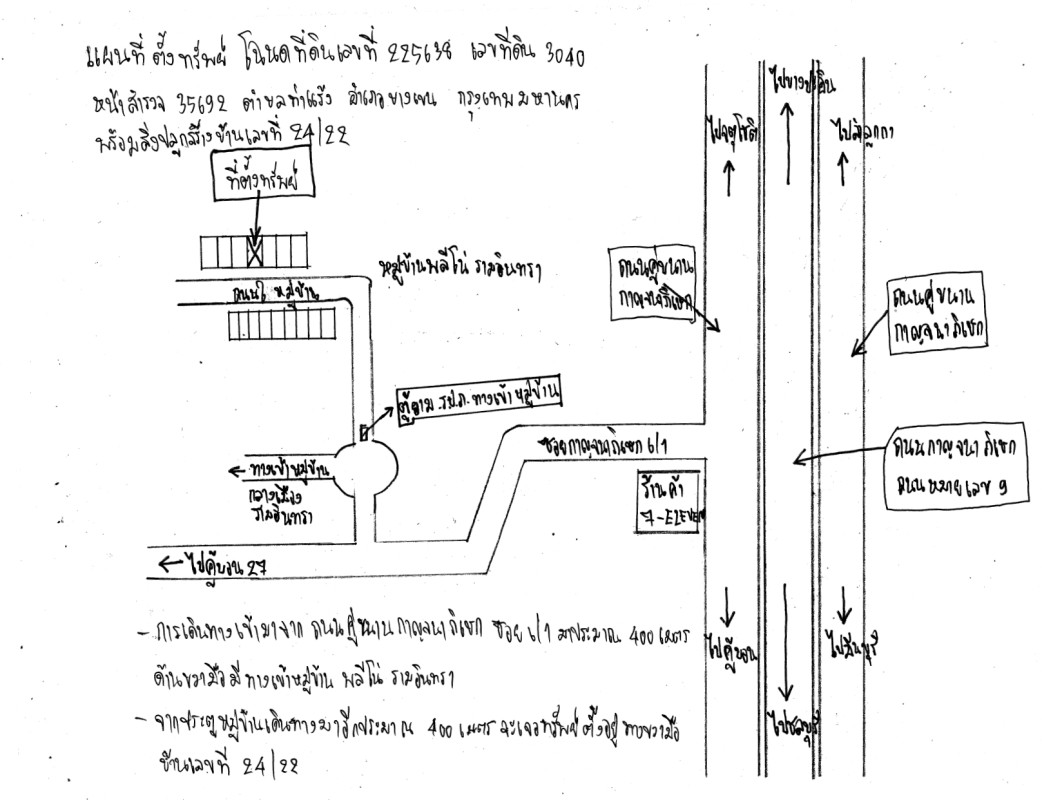 แผนที่ตั้งทรัพย์ โฉนดที่ดินเลขที่ 225638 เลขที่ดิน 3040
หน้าสำรวจ 35692 ตำบลท่าแร้ง อำเภอบางเขน กรุงเทพมหานคร
พร้อมสิ่งปลูกสร้างบ้านเลขที่ 24/22
ที่ตั้งทรัพย์
ไปบางปะอิน
ไปจตุโชติ
ไปลำลูกกา
หมู่บ้านพลีโน่ รามอินทรา
ถนนในหมู่บ้าน
ถนนคู่ขนาน
กาญจนาภิเษก
ถนนคู่ขนาน
กาญจนาภิเษก
ตู้ยาม รปภ. ทางเข้าหมู่บ้าน
ซอยกาญจนาภิเษก 6/1
ถนนกาญจนาภิเษก
ถนนหมายเลข 9
ทางเข้าหมู่บ้าน
กลางเมือง
รามอินทรา
ร้านค้า
7-ELEVEN
ไปคู้บอน 27
ไปคู้บอน
ไปมีนบุรี
ไปชลบุรี
- การเดินทางเข้ามาจาก ถนนคู่ขนานกาญจนาภิเษก ซอย 6/1 มาประมาณ 400 เมตร
ด้านขวามือมีทางเข้าหมู่บ้าน พลีโน่ รามอินทรา
- จากประตูหมู่บ้านเดินทางมาอีกประมาณ 400 เมตร จะเจอทรัพย์ตั้งอยู่ทางขวามือ
บ้านเลขที่ 24/22